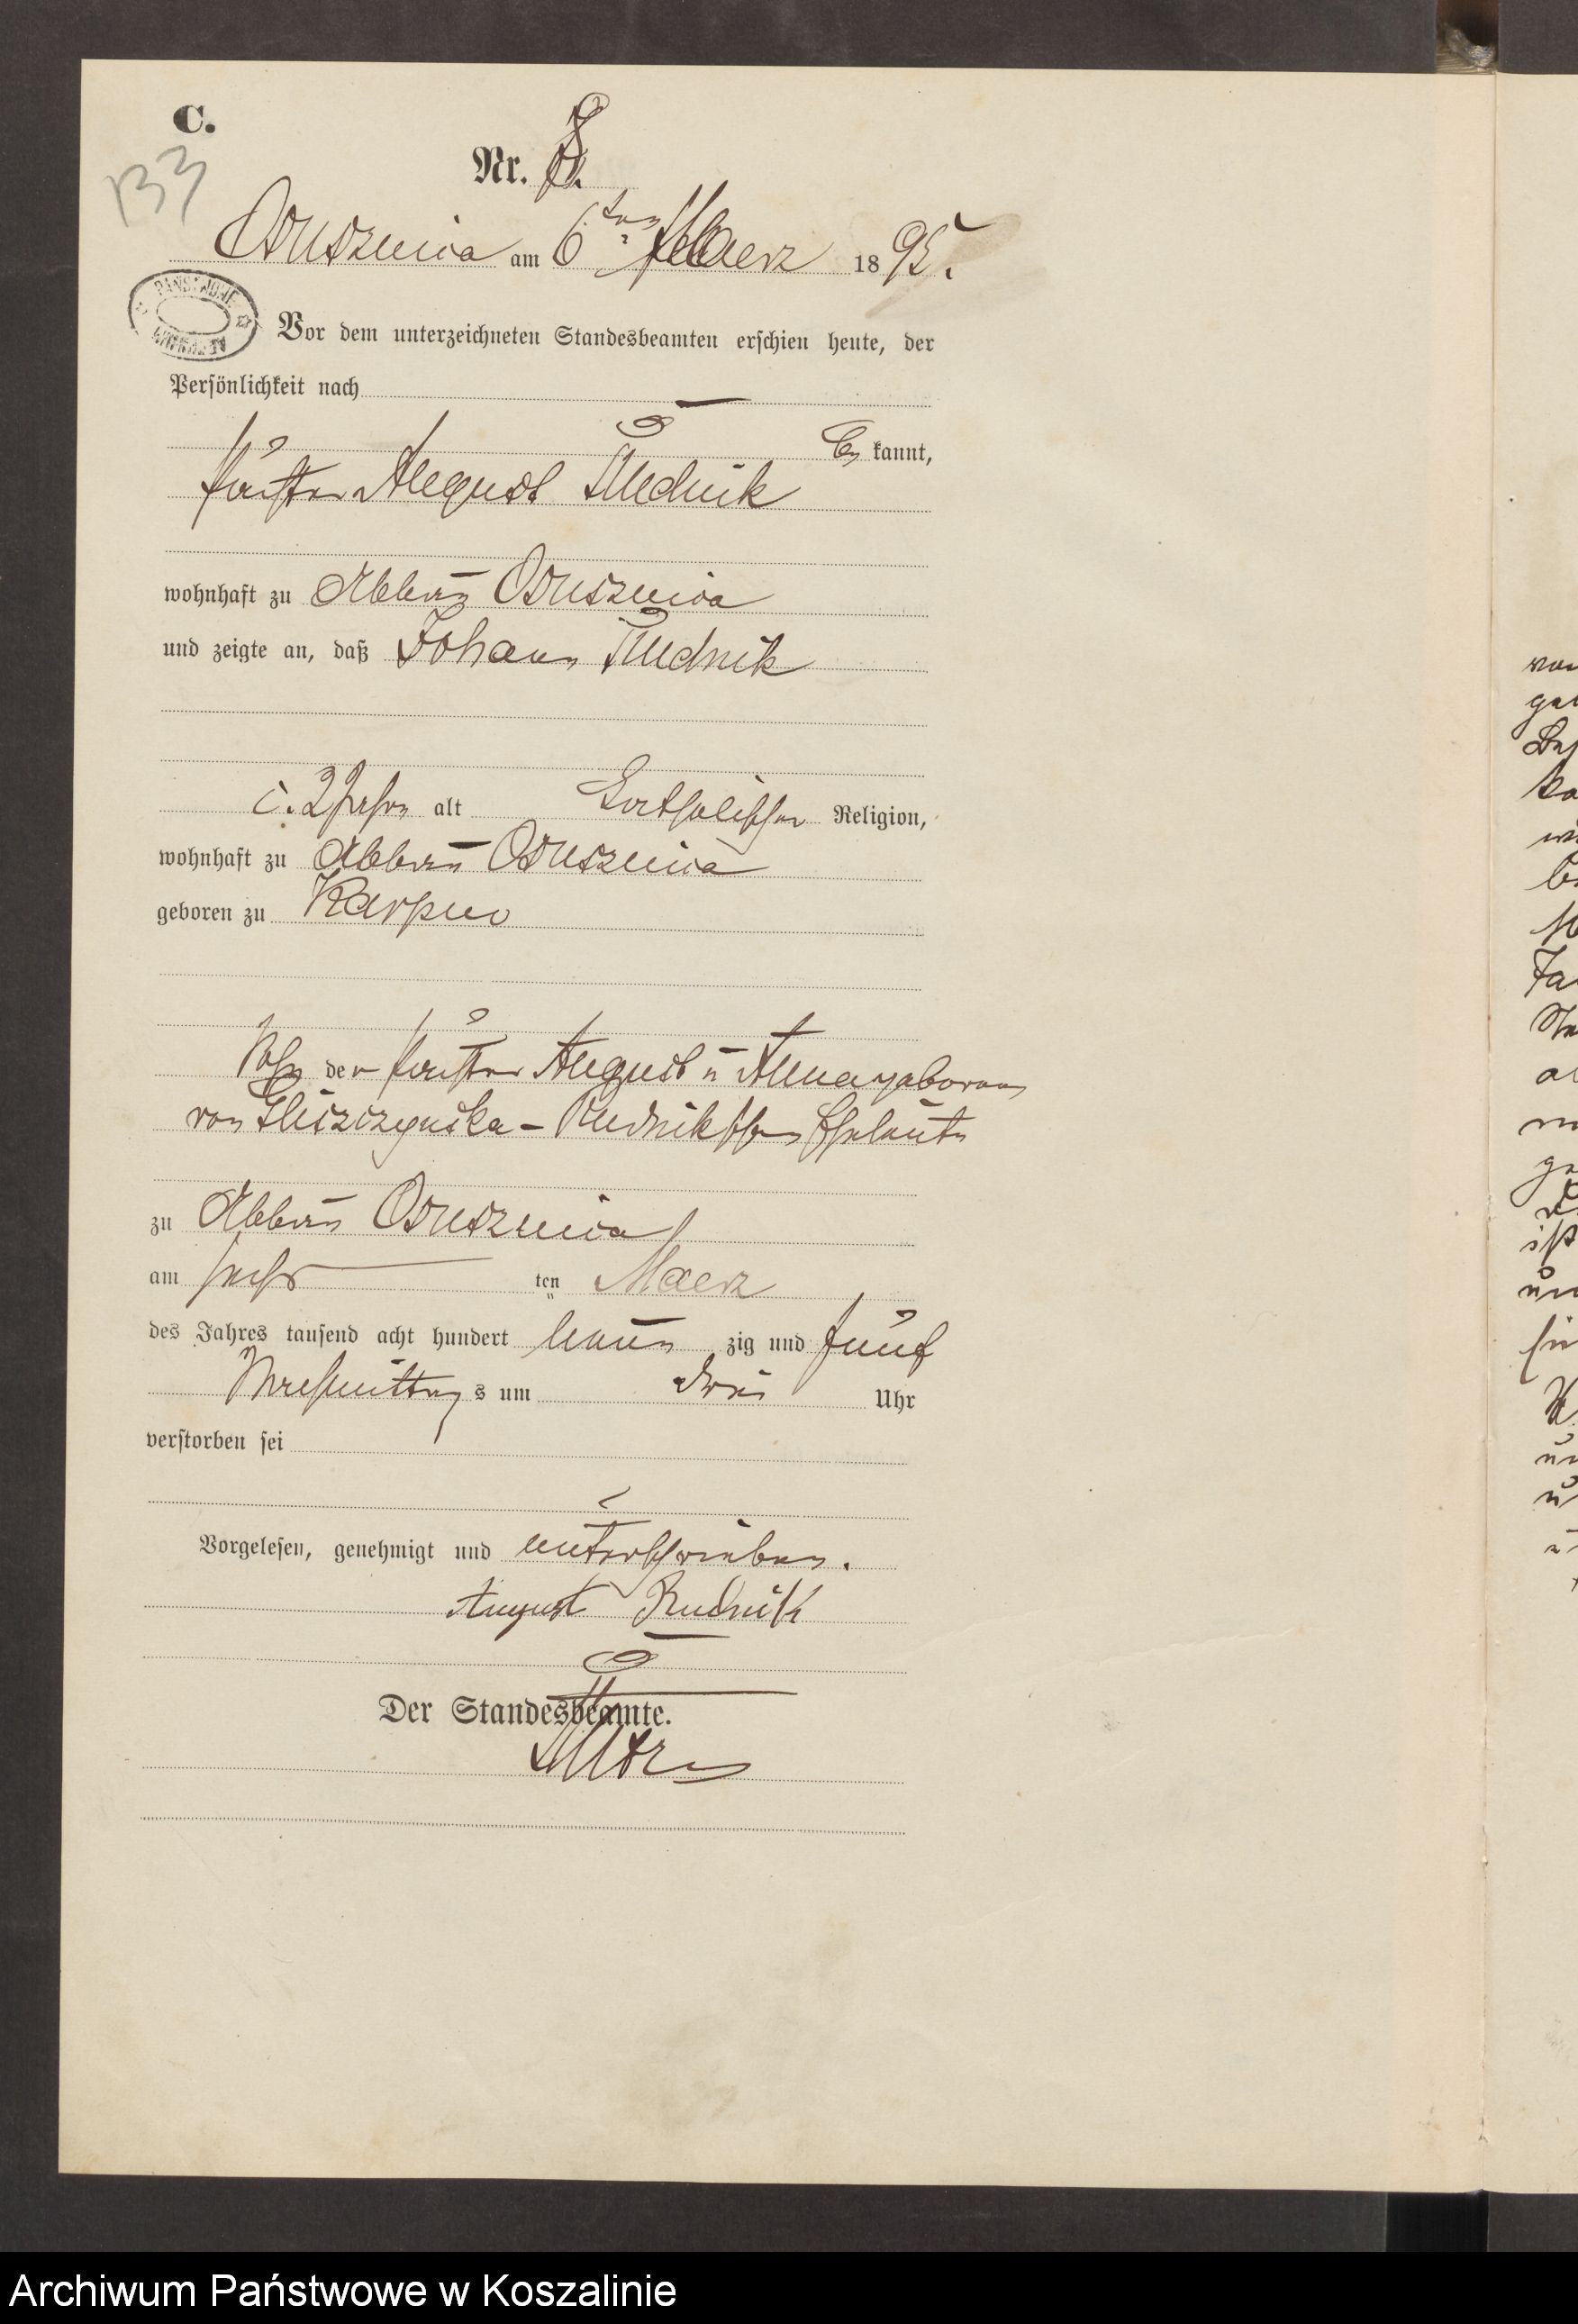 C.
133
Nr. 8.
Ossusznica am 6ten Maerz 1895.
PAŃSTWOWE
Vor dem unterzeichneten Standesbeamten erschien heute, der
Persönlichkeit nach
be kannt,
Förster August Rudnik
wohnhaft zu Abbau Ossusznica
und zeigte an, daß Johann Rudnik
2 Jahre alt katholischer Religion,
wohnhaft zu Abbau Ossusznica
geboren zu Karpno
Sohn der Förster August u Anna geborene
von Gliszczynska – Rudnikschen Eheleute
zu Abbau Ossusznica
am sechs ten Maerz
des Jahres tausend acht hundert neun zig und fünf
Nachmittag s um drei Uhr
verstorben sei
Vorgelesen, genehmigt und unterschrieben.
August Rudnik
Der Standesbeamte.
Archiwum Państwowe w Koszalinie